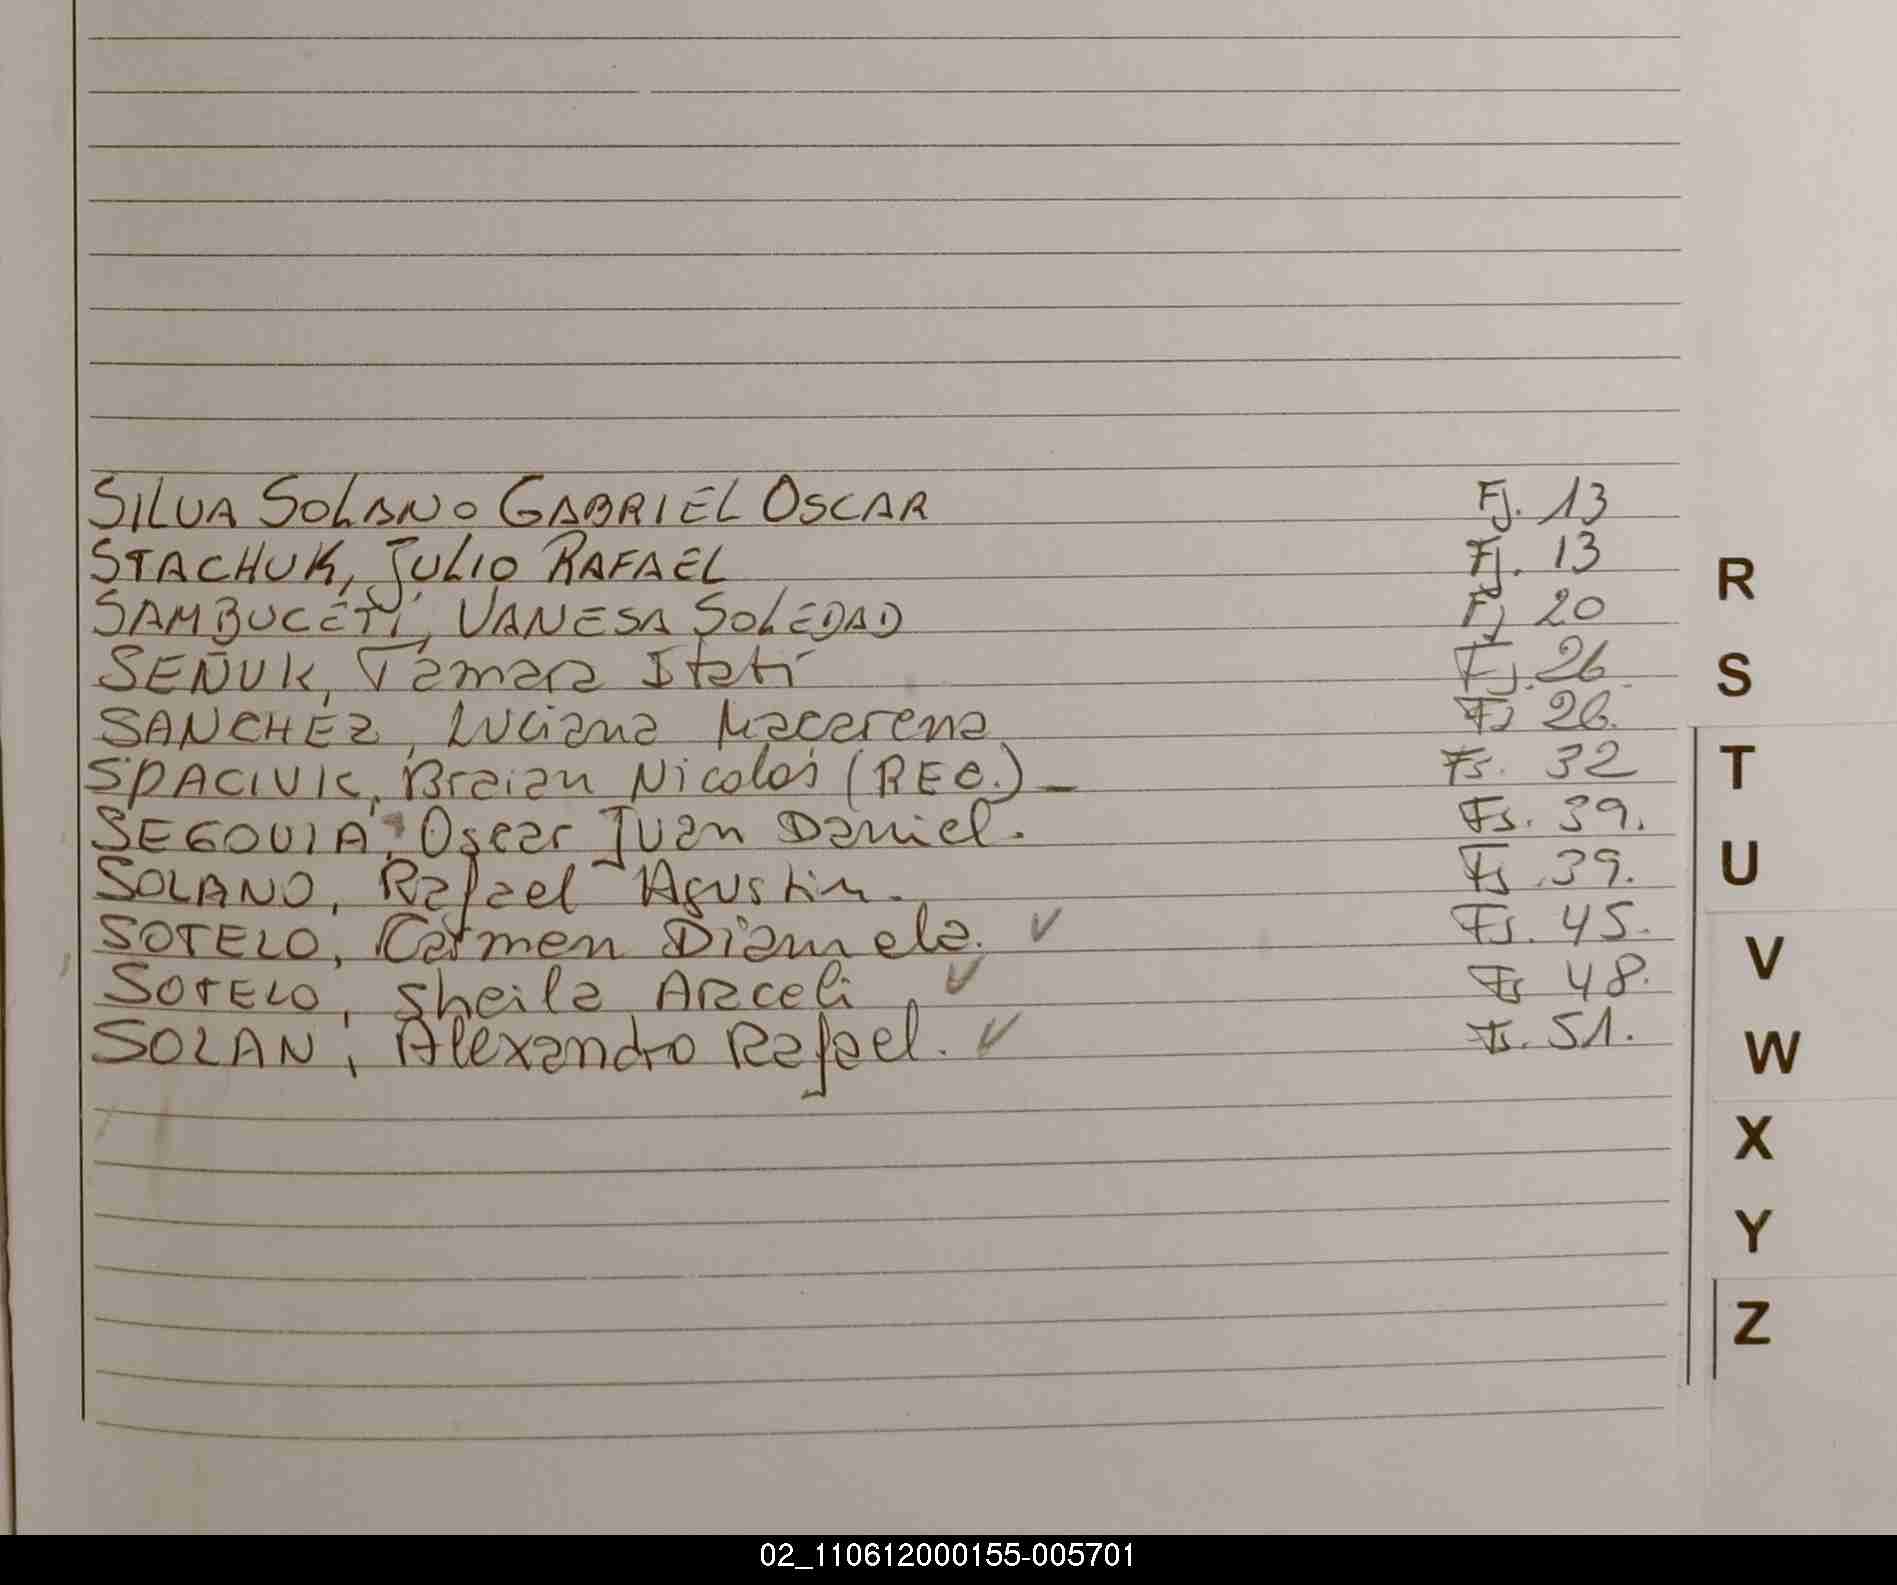 SILVA SOLANO GABRIEL OSCAR Fj. 13
STACHUK, JULIO RAFAEL Fj. 13
SAMBUCETI, VANESA SOLEDAD Fj 20
SEÑUK, Tamara Itatí Fj. 26
SANCHEZ, Luciana Macarena Fs 26.
SPACIVIK, Braian Nicolás (REC.) — Fs. 32
SEGOVIA, Oscar Juan Daniel. Fs. 39.
SOLANO, Rafael Agustin. Fs. 39.
SOTELO, Carmen Diamela. ✓ Fs. 45.
SOTELO, Sheila Araceli ✓ Fs 48.
SOLAN, Alexandro Rafael. ✓ Fs. 51.
R
S
T
U
V
W
X
Y
Z
02_110612000155-005701